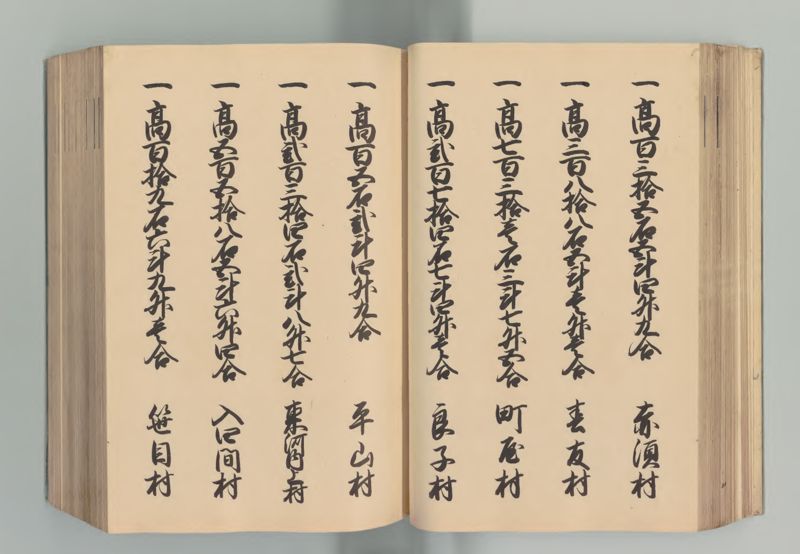 一高百三拾五石五斗四升九合 赤須村
一高三百八拾八石五斗壱升壱合 春友村
一高七百三拾壱石三斗七升五合 町屋村
一高弐百七拾四石七斗四升壱合 良子村
一高百五石弐斗四升九合 平山村
一高弐百三拾四石弐斗八升七合 東河内上村
一高五百五拾八石五斗六升四合 入四間村
一高百拾九石六斗九升壱合 笹目村